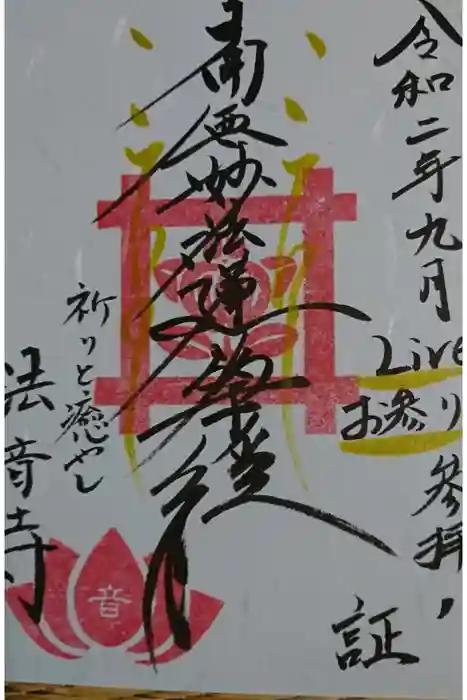 令和二年九月
Live
お参り
参拝ノ
証
南無妙法蓮華經
祈りと癒やし
法音寺
音